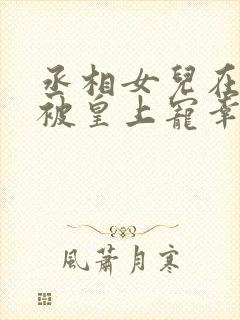 丞相女兒在
被皇上寵幸
風蕭月寒